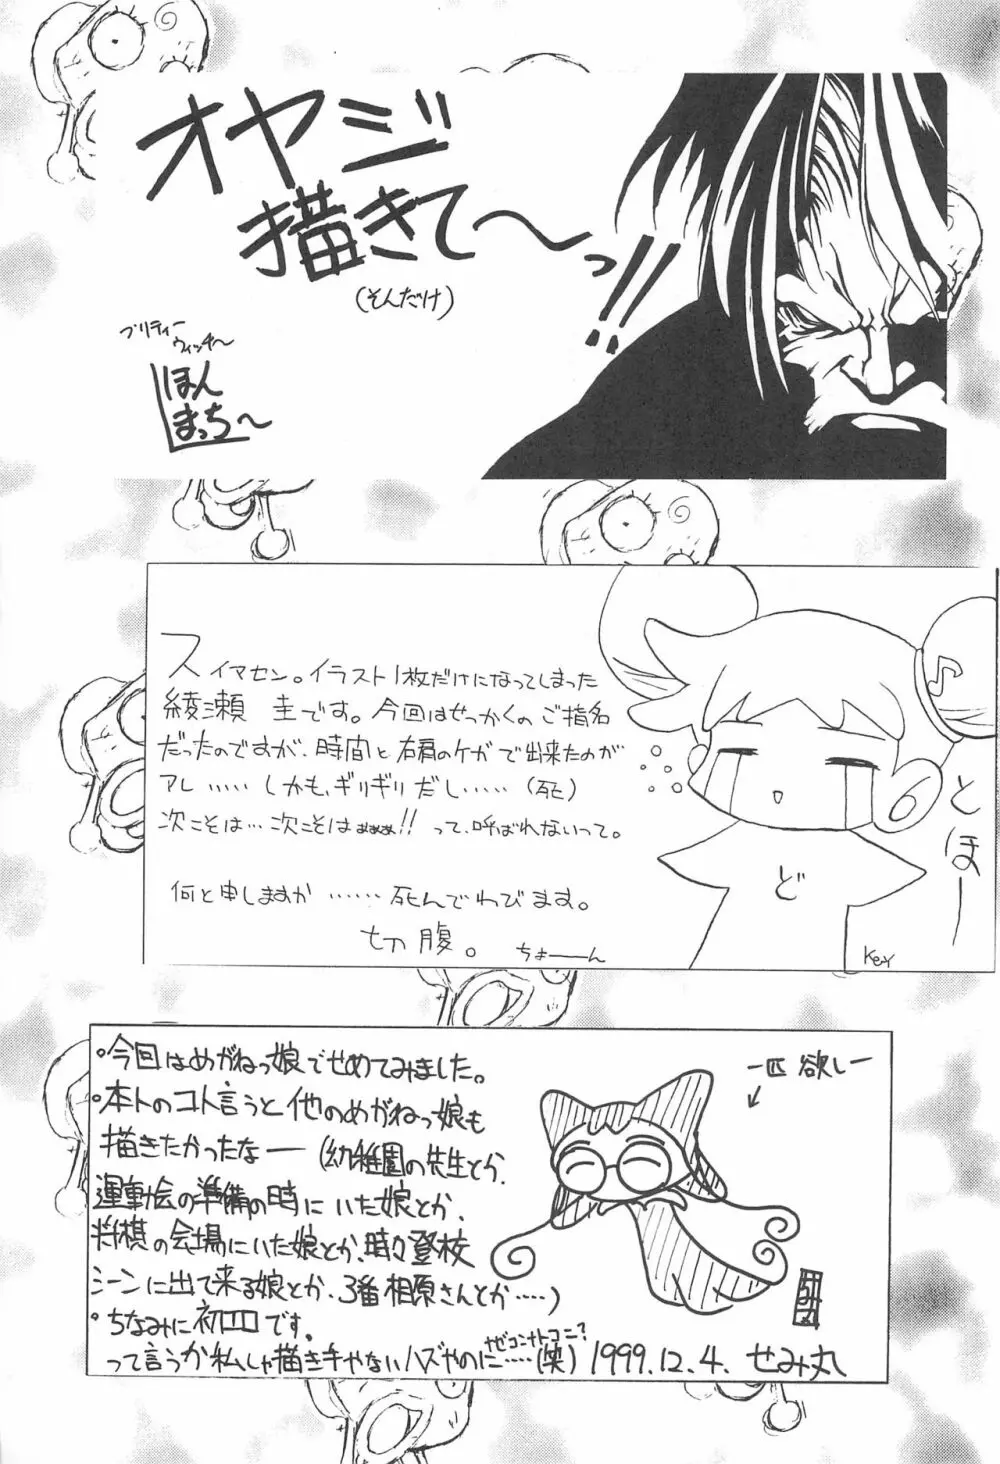 オヤジ
描きて〜っ!!
(そんだけ)
プリティー
ウィッチ〜
ほん
まっち〜
スイマセン。イラスト1枚だけになってしまった
綾瀬 圭です。今回はせっかくのご指名
だったのですが、時間と右肩のケガで出来たのが
アレ……しかも、ギリギリだし……(死)
次こそは…次こそはぁぁぁ!!って、呼ばれないって。
何と申しますか……死んでわびます。
切腹。ちょーーん
とほー
ど
Key
・今回はめがねっ娘でせめてみました。
・本トのコト言うと他のめがねっ娘も
描きたかったなー(幼稚園の先生とか、
運動会の準備の時にいた娘とか、
将棋の会場にいた娘とか、時々登校
シーンに出て来る娘とか、3番相原さんとか…‥)
・ちなみに初ロロです。
って言うか私しゃ描き手やないハズやのに……(笑)1999.12.4. せみ丸
なぜコンナトコニ?
一匹欲しー